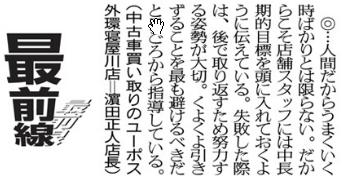 ◎…人間だからうまくいく
時ばかりとは限らない。だか
らこそ店舗スタッフには中長
期的目標を頭に入れておくよ
うに伝えている。失敗した際
は、後で取り返すため努力す
る姿勢が大切。くよくよ引き
ずることを最も避けるべきだ
とごろから指導している。
(中古車買い取りのユーポス
外環寝屋川店=濵田正人店長)
最前線